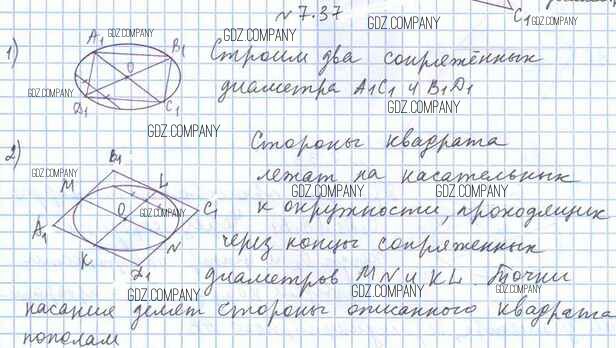 № 7.37
GDZ.COMPANY
C1
1)
A1
GDZ.COMPANY
B1
GDZ.COMPANY
Строим два сопряжённых
GDZ.COMPANY
O
GDZ.COMPANY
диаметра A1C1 и B1D1
D1
C1
GDZ.COMPANY
2)
Стороны квадрата
B1
GDZ.COMPANY
M
L
лежат на касательных
GDZ.COMPANY
GDZ.COMPANY
O
GDZ.COMPANY
C1
к окружности, проходящих
A1
N
через концы сопряженных
K
GDZ.COMPANY
D1
GDZ.COMPANY
диаметров MN и KL. Точки
GDZ.COMPANY
GDZ.COMPANY
касания делят стороны описанного квадрата
GDZ.COMPANY
пополам